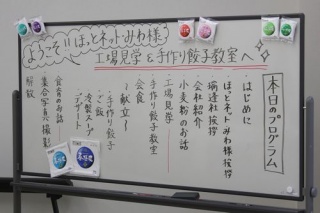 ようこそ!! ほっとネットみわ様
工場見学&手作り餃子教室へ
本日のプログラム
・はじめに
・ほっとネットみわ様挨拶
・瑞逢社挨拶
・会社紹介
・小麦粉のお話
・工場見学
・手作り餃子教室
・会食
〜献立〜
・手作り餃子
・ごはん
・冷製スープ
・デザート
・食育のお話
・集合写真撮影
・解散